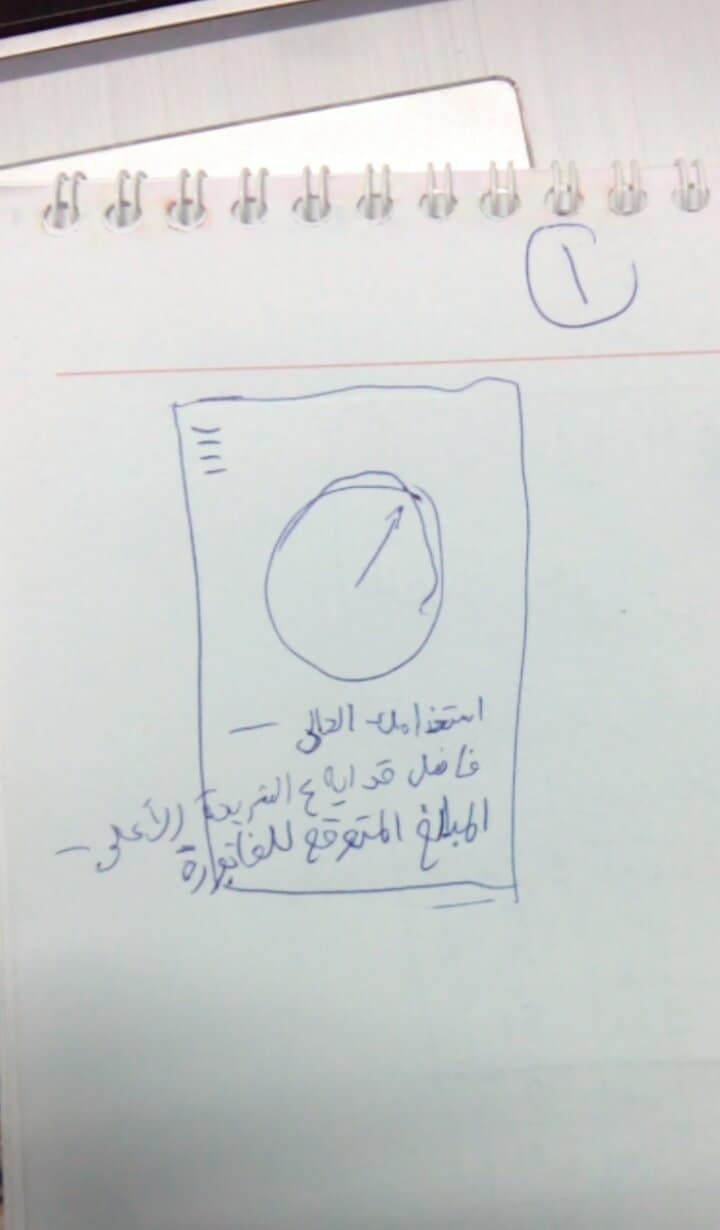 ١
استخدامك الحالى —
فاضل قد ايه ع الشريحة الأعلى —
المبلغ المتوقع للفاتورة